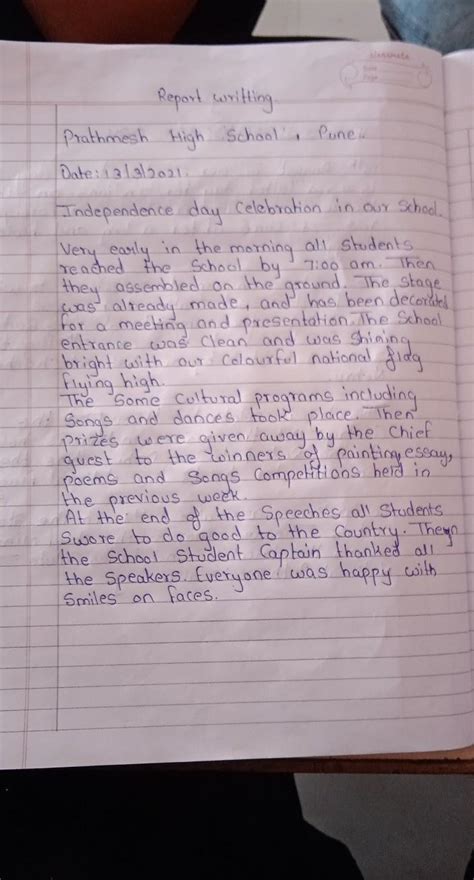 classmate
Date
Page
Report writting.
Prathmesh High School, Pune.
Date: 13/3/2021.
Independence day Celebration in our School.
Very early in the morning all Students
reached the School by 7:00 am. Then
they assembled on the ground. The stage
was already made, and has been decorated
for a meeting and presentation. The School
entrance was clean and was Shining
bright with our Colourful national flag
flying high.
The Some Cultural programs including
Songs and dances took place. Then
prizes were given away by the Chief
guest to the winners of painting, essay,
poems and Songs Competitions held in
the previous week.
At the end of the Speeches all Students
Swore to do good to the Country. Then
the School Student Captain thanked all
the Speakers. Everyone was happy with
Smiles on faces.